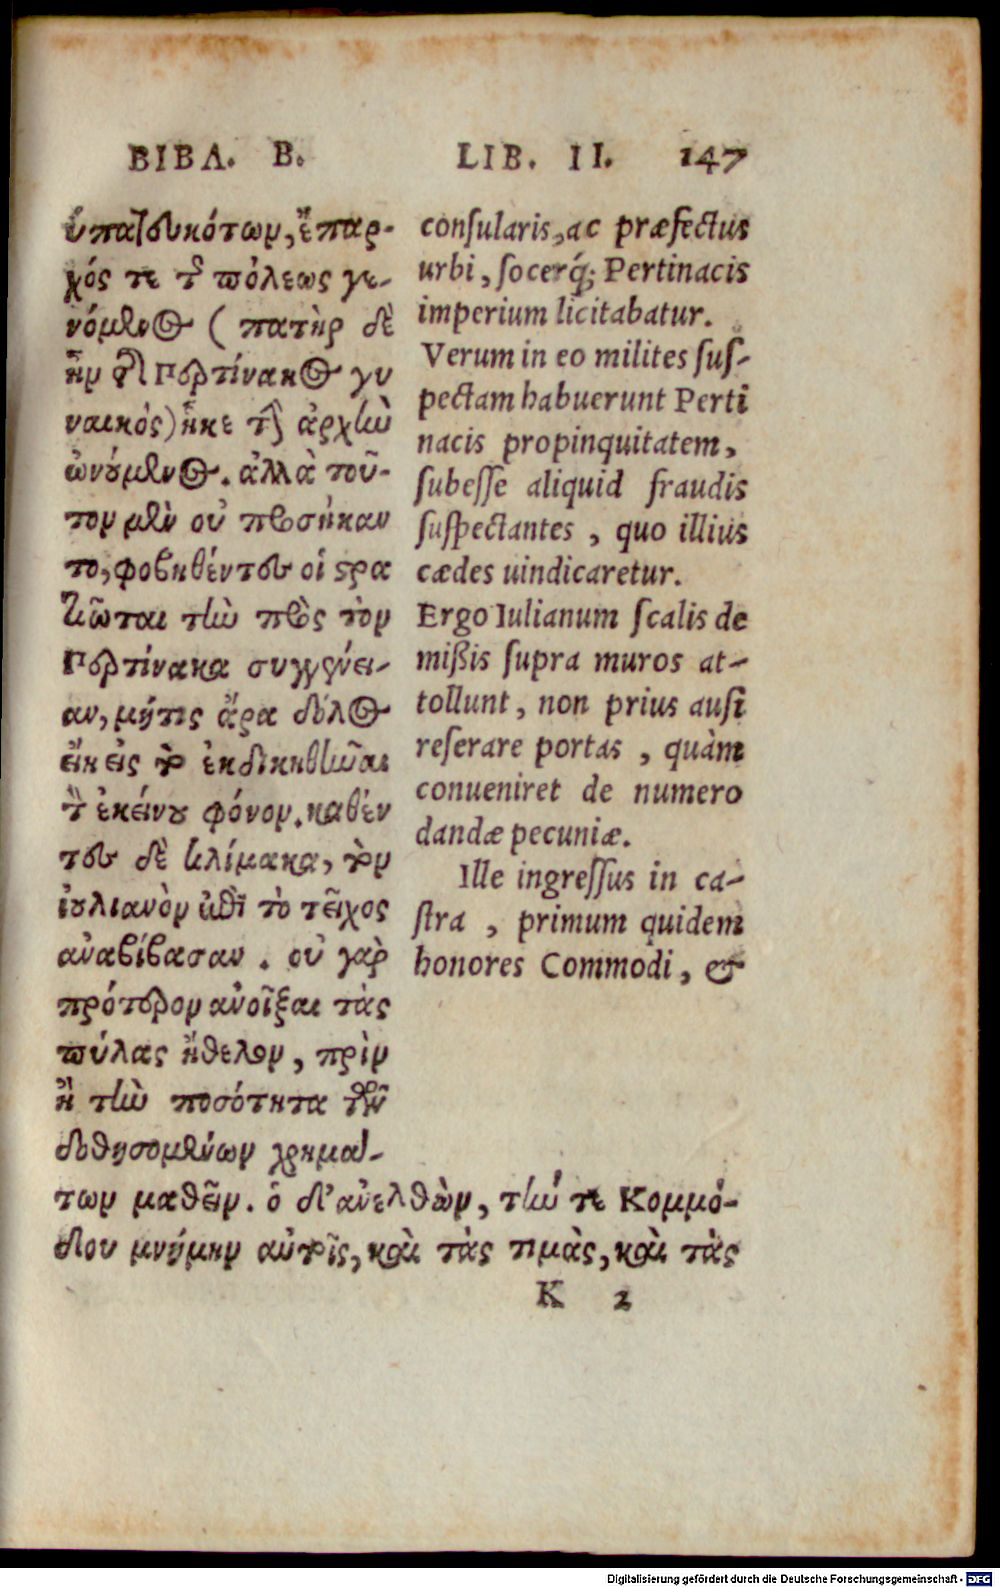 ΒΙΒΛ. Β.
ὑπατευκότων, ἔπαρ-
χός τε τῆς πόλεως γε-
νόμενος (πατὴρ δὲ
ἦν τῆς Περτίνακος γυ
ναικός) ἧκε τὴν ἀρχὴν
ὠνούμενος. ἀλλὰ τοῦ-
τον μὲν οὐ προσήκαν
το, φοβηθέντες οἱ στρα
τιῶται τὴν πρὸς τὸν
Περτίνακα συγγένει-
αν, μήτις ἄρα δόλος
εἴη εἰς τὸ ἐκδικηθῆναι
τὸν ἐκείνου φόνον. καθέν
τες δὲ κλίμακα, τὸν
ἰουλιανὸν ἐπὶ τὸ τεῖχος
ἀνεβίβασαν. οὐ γὰρ
πρότερον ἀνοῖξαι τὰς
πύλας ἤθελον, πρὶν
ἢ τὴν ποσότητα τῶν
δοθησομένων χρημά-
των μαθεῖν. ὁ δ' ἀνελθὼν, τήν τε Κομμό-
δου μνήμην αὐτοῖς, καὶ τὰς τιμὰς, καὶ τὰς
LIB. II. 147
consularis, ac præfectus
urbi, socerq́; Pertinacis
imperium licitabatur.
Verum in eo milites sus-
pectam habuerunt Perti
nacis propinquitatem,
subesse aliquid fraudis
suspectantes, quo illius
cædes uindicaretur.
Ergo Iulianum scalis de
mißis supra muros at-
tollunt, non prius ausi
reserare portas, quàm
conueniret de numero
dandæ pecuniæ.
Ille ingressus in ca-
stra, primum quidem
honores Commodi, &
K 2
Digitalisierung gefördert durch die Deutsche Forschungsgemeinschaft - DFG